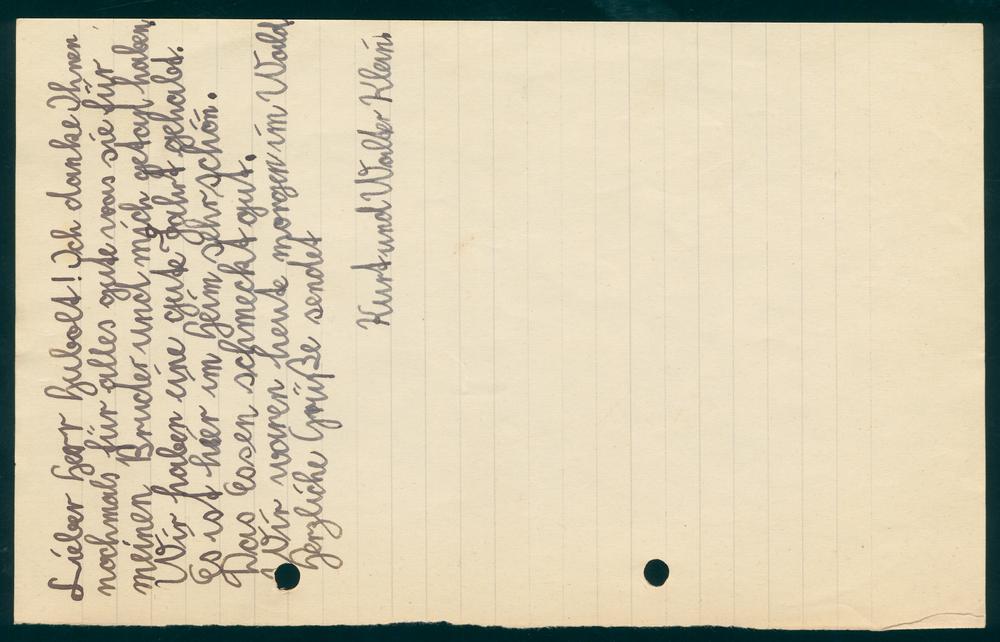 Lieber Herr Hubolt! Ich danke Ihnen
nochmals für alles gute was sie für
meinen Bruder und mich getan haben,
Wir haben eine gute Fahrt gehabt.
Es ist hier im Heim sehr schön.
Das Essen schmeckt gut.
Wir waren heute morgen im Wald
Herzliche Grüße sendet
Kurt und Walter Klein